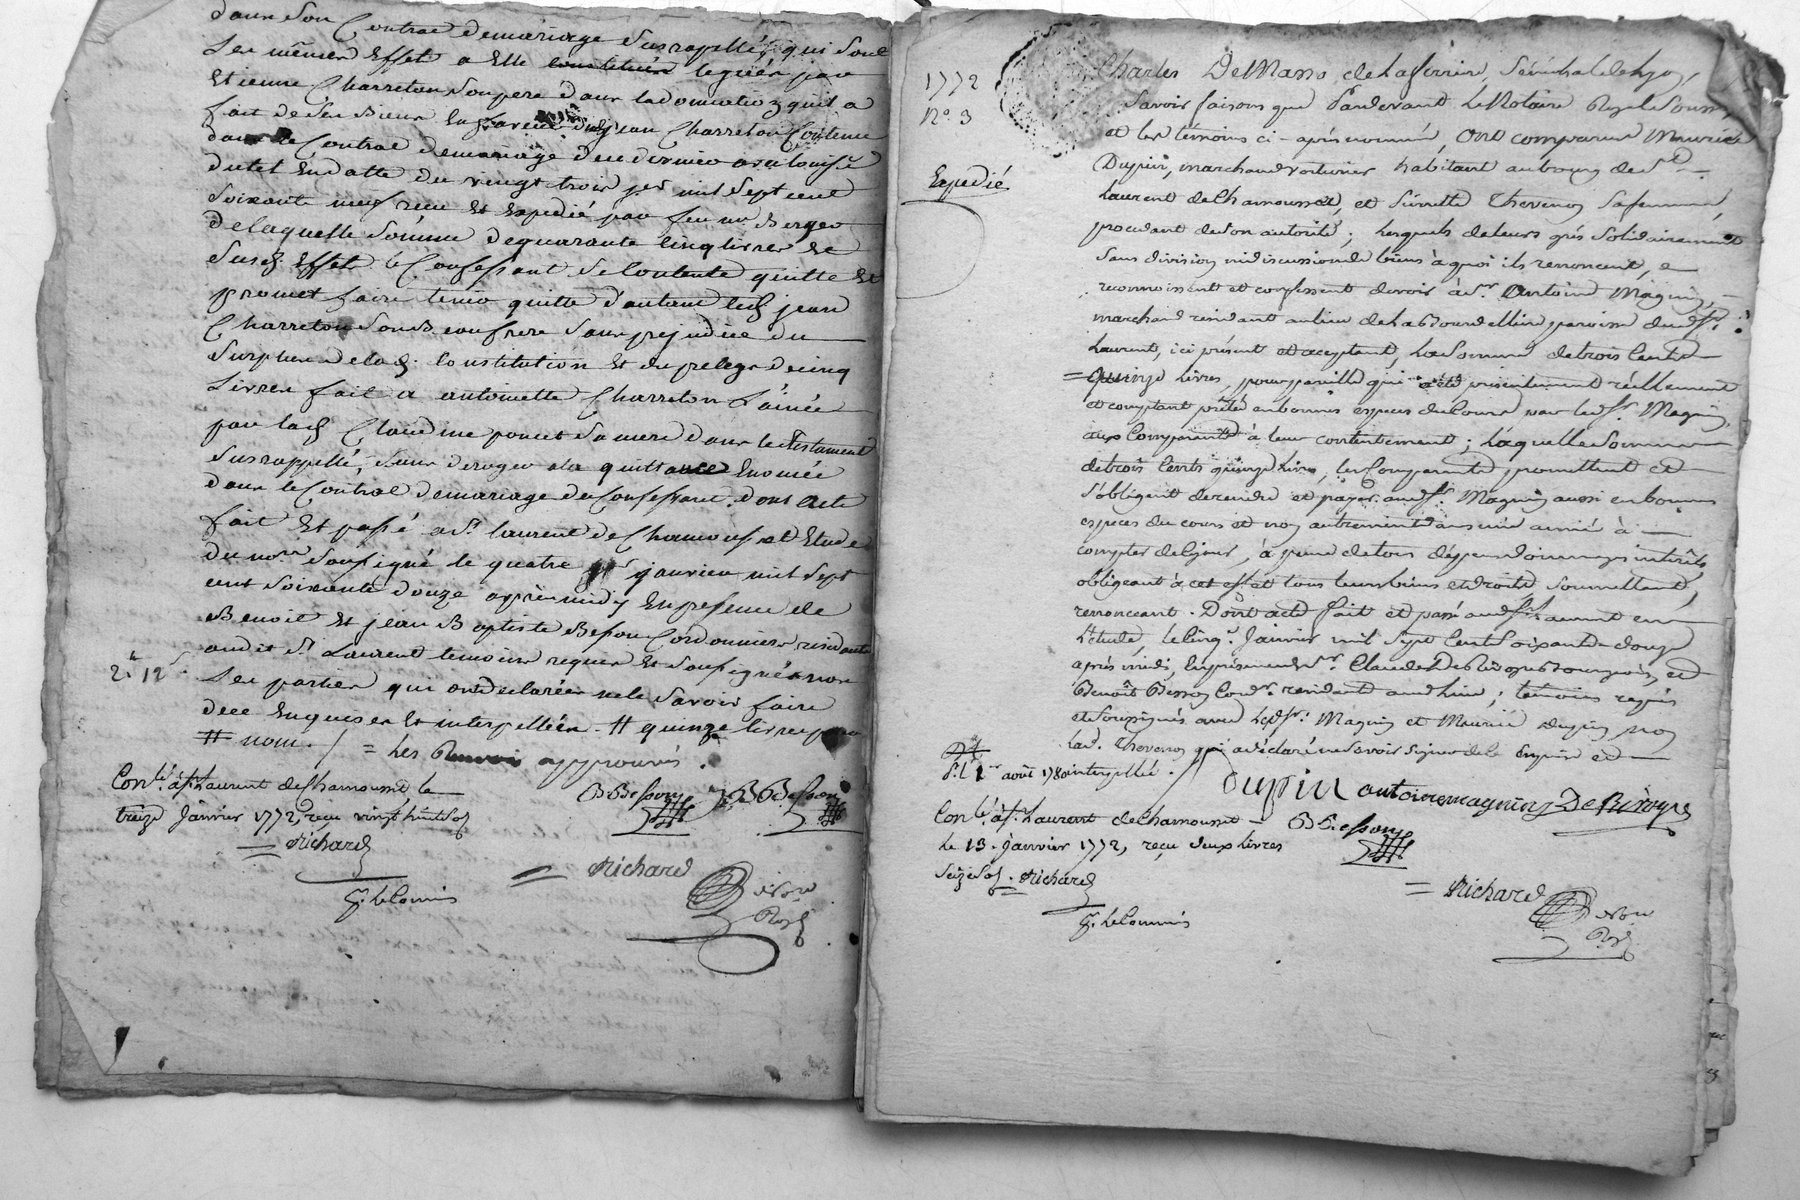 dans son Contrat demariage susrappellé, qui sont
les mêmes Effets a Elle constitués legués par
Etienne Charreton son pere dans la donnation quil a
fait de ses biens En faveur dud. jean Charreton Contenue
dans le Contrat demariage de ce dernier avec louise
dutel En datte du vingt trois mil sept cent
soixante neuf recu Et Expedié par feu me Berger
de laquelle somme de quarante cinq livres Et
susd. Effets le Confessant se Contente quitte Et
promet faire tenir quitte d'autant led. jean
Charreton sond. confrere sans prejudice du
surplus de lad. Constitution Et du prelegs de cinq
Livres fait a antoinette Charreton L'ainée
par lad. Claudine poncet sa mere dans le testament
susrappellé, sans deroger a la quittance Enoncée
dans le Contrat demariage du Confessant. Dont acte
fait Et passé a St. laurent de Chamousset Etude
du nore. soussigné le quatre janvier mil sept
cent soixante douze après midy En presence de
Benoit Et jean Baptiste Besson Cordonniers residants
audit St. Laurent temoins requis Et soussignés non
Les parties qui ont declarées ne le savoir faire
de ce Enquises Et interpellées. # quinze livres pour
# nom. / = les Renvois approuvés.
2# 12s
Conlé. à St. Laurent de Chamousset le
treize Janvier 1772, reçu vingt huit sols
Richard
pr. le Commis
B. Besson J. B. Besson
Richard
Nore
Royl
1772
N° 3
Expedié
Charles De Masso de la ferriere, Sénéchal de Lyon,
Savoir faisons que Pardevant Le Notaire Royal soussigné
et les témoins ci-après nommés, ont comparus Maurice
Dupin, marchand voiturier habitant au bourg de St.
Laurent de Chamousset, et Pierrette Thevenon sa femme,
procedant de son autorité; lesquels de leurs grés solidairement
sans division ni discussion de biens à quoi ils renoncent,
reconnoissent et confessent devoir à Sr. Antoine Magnin,
marchand residant au lieu de la Bourdelliere paroisse dud. St.
Laurent, ici présent et acceptant, la somme de trois cents
quinze livres, pour pareille qui a été présentement réellement
et comptant prêtée en bonnes espèces du cours par led. Sr. Magnin
aux Comparants à leur contentement; laquelle somme
de trois cents quinze livres, les Comparants promettent et
s'obligent de rendre et payer aud. Sr. Magnin aussi en bonnes
especes du cours et non autrement dans une année à
compter de ce jour, à peine de tous dépens dommages intérêts,
obligeant à cet effet tous leurs biens et droits soumettant,
renonceant. Dont acte fait et passé aud. St. Laurent en
l'étude, le cinq. Janvier mil sept cent soixante-douze
après midi, En présence de Sr. Claude De Riroyes Bourgeois, et
Benoît Besson Cordr. residant aud. lieu; témoins requis
et soussignés avec led. Sr. Magnin et Maurice Dupin non
lad. Thevenon qui a déclaré ne savoir signer de ce Enquise et
interpellée. /
1er août 1780
Dupin antoine magnin De Riroyes
B. Besson
Conlé. à St. Laurent de Chamousset
le 13. Janvier 1772, reçu deux livres
seize sols. Richard
pr. le Commis
Richard
Nore
Royl